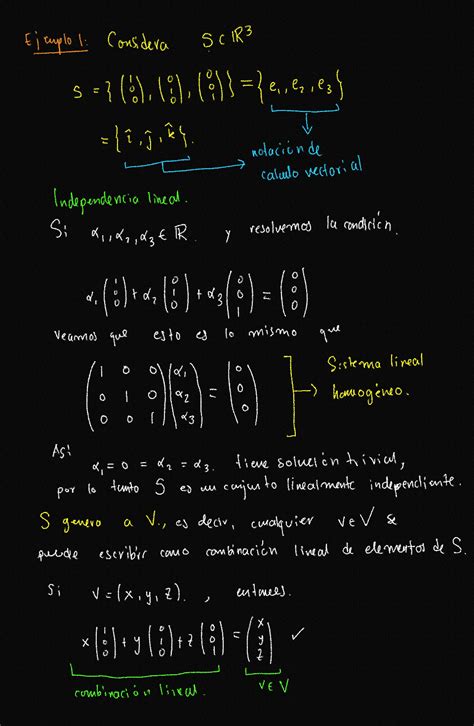 Ejemplo 1: Considera S ⊂ ℝ³
S = {(1 0 0), (0 1 0), (0 0 1)} = {e₁, e₂, e₃}
= {î, ĵ, k̂}.
notación de
calculo vectorial
Independencia lineal.
Si α₁, α₂, α₃ ∈ ℝ. y resolvemos la condición.
α₁(1 0 0) + α₂(0 1 0) + α₃(0 0 1) = (0 0 0)
veamos que esto es lo mismo que
(1 0 0
0 1 0
0 0 1) (α₁ α₂ α₃) = (0 0 0)
Sistema lineal
homogéneo.
Así
α₁ = 0 = α₂ = α₃. tiene solución trivial,
por lo tanto S es un conjunto linealmente independiente.
S genera a V., es decir, cualquier v ∈ V se
puede escribir como combinación lineal de elementos de S.
Si v = (x, y, z). , entonces.
x(1 0 0) + y(0 1 0) + z(0 0 1) = (x y z) ✓
combinación lineal.
v ∈ V